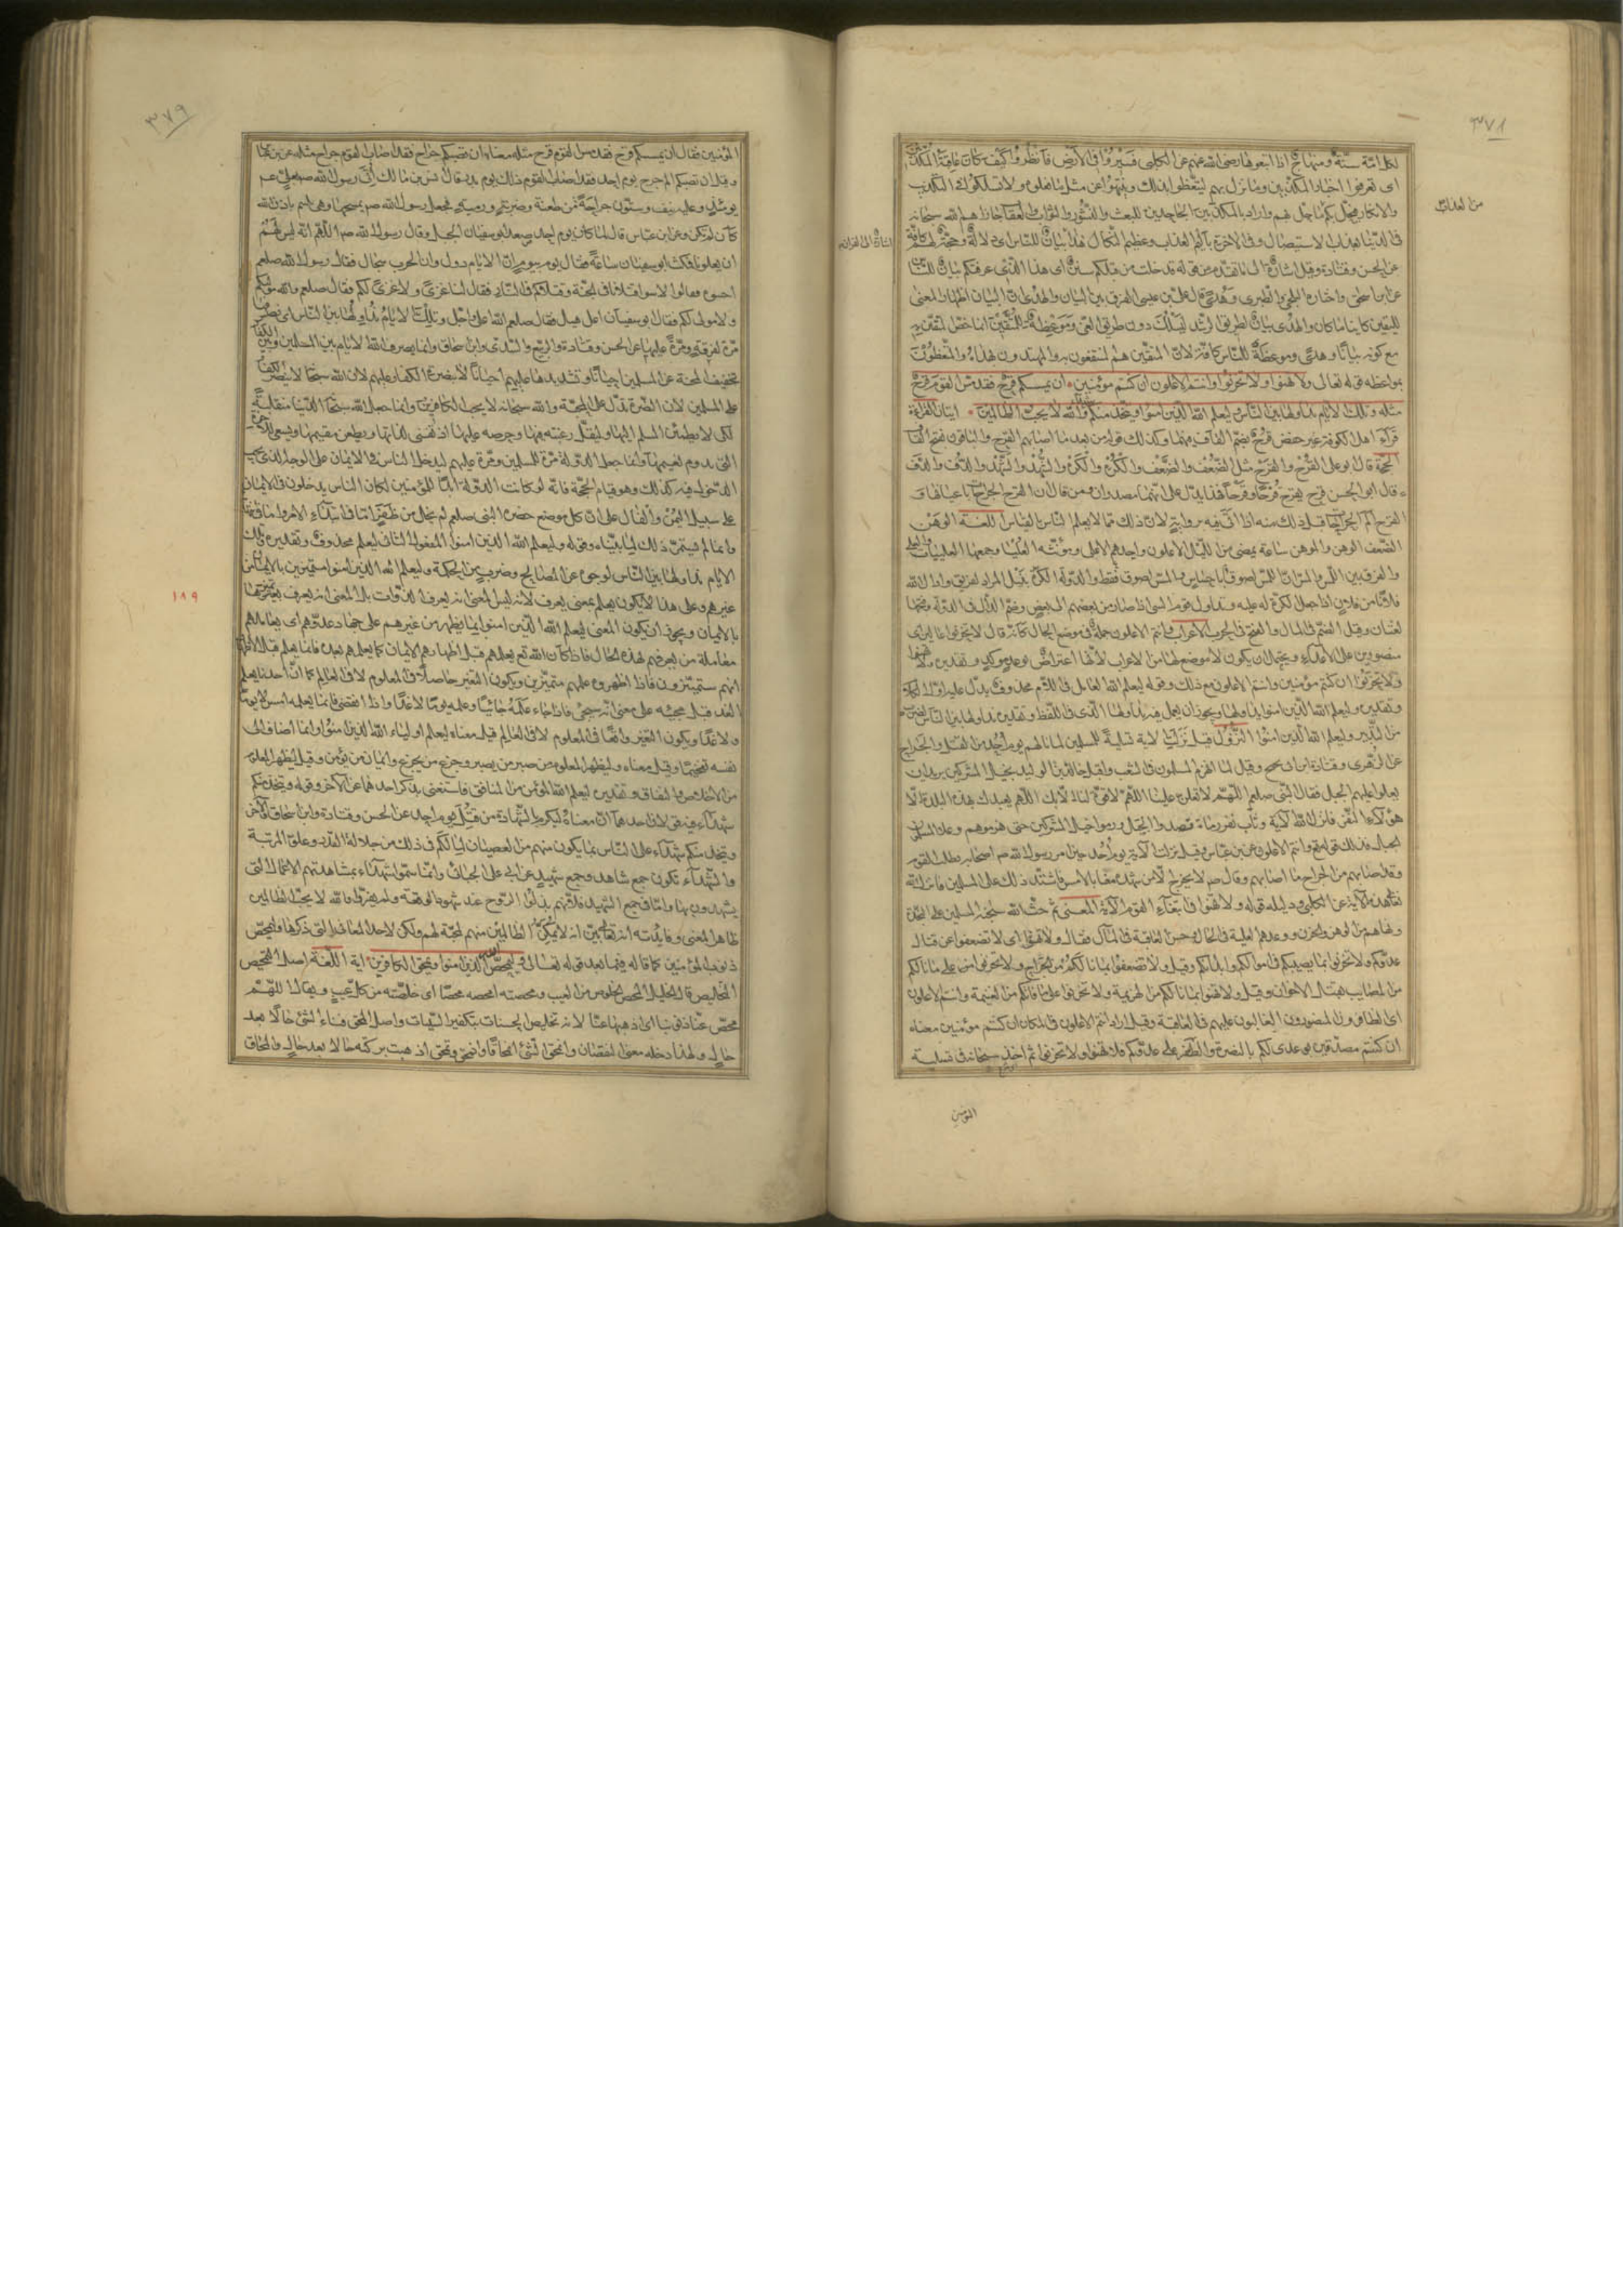 ٣٧٨
لكل امّة سنّة ومنهاج اذا اتبعوها رضى الله عنهم عن الكلبى فسيروا فى الارض فانظروا كيف كان عاقبة المكذبين
اى تعرفوا اخبار المكذبين وما نزل بهم لتتعظوا بذلك وتنتهوا عن مثل ما فعلوه ولا تسلكوا فى التكذيب
من العذاب
فى الدنيا بعذاب الاستيصال وفى الاخرة باليم العذاب وعظيم النكال هذا بيان للناس اى دلالة وحجة لهم كافة
عن الحسن وقتادة وقيل اشارة الى ما تقدم من قوله قد خلت من قبلكم سنن اى هذا الذى عرفتكم بيان للناس
عن ابن اسحق واختاره البلخى والطبرى وهدى قال على بن عيسى الفرق بين البيان والهدى ان البيان اظهار المعنى
للنفس كاينا ما كان والهدى بيان لطريق الرشد ليسلك دون طريق الغى وموعظة للمتقين انما خص المتقين به
مع كونه بيانا وهدى وموعظة للناس كافة لان المتقين هم المنتفعون به والمهتدون بهداه والمتعظون
بمواعظه قوله تعالى ولا تهنوا ولا تحزنوا وانتم الاعلون ان كنتم مؤمنين ان يمسسكم قرح فقد مس القوم قرح
مثله وتلك الايام نداولها بين الناس وليعلم الله الذين امنوا ويتخذ منكم شهداء والله لا يحب الظالمين ايتان القراءة
قرأ اهل الكوفة غير حفص قرح بضم القاف فيهما وكذلك قوله من بعد ما اصابهم القرح والباقون بفتح القاف
الحجة قال ابو على القرح والقرح مثل الضعف والضعف والكره والكره والشهد والشهد والدف والدف
قال ابو الحسن قرح يقرح قرحا وقرحا فهذا يدل على انهما مصدران ومن قال ان القرح الجراحات باعيانها و
القرح الم الجراحات قبل ذلك منه اذا اتى فيه برواية لان ذلك مما لا يعلم بالقياس اللغة الوهن
الضعف الوهن والموهن ساعة يمضى من الليل الاعلون واحدهم الاعلى ومؤنثه العليا وجمعها العليات والعلى
لغتان وقيل الضم فى المال والفتح فى الحرب الاعراب وانتم الاعلون جملة فى موضع الحال كانه قال لا تحزنوا عالين اى
منصورين على الاعداء ويحتمل ان يكون لا موضع لها من الاعراب لانها اعتراض بوعد موكد وتقديره ولا تهنوا
ولا تحزنوا ان كنتم مؤمنين وانتم الاعلون مع ذلك وقوله ليعلم الله العامل فى اللام محذوف يدل عليه اول الكلام
وتقديره وليعلم الله الذين امنوا نداولها ويجوز ان يعمل فيه نداولها الذى فى اللفظ وتقديره نداولها بين الناس لضرب
من التدبير وليعلم الله الذين امنوا النزول قيل نزلت الاية تسلية للمسلمين لما نالهم يوم احد من القتل والجراح
عن الزهرى وقتادة وابن ابى نجيح وقيل لما انهزم المسلمون فى الشعب واقبل خالد بن الوليد بخيل المشركين يريد ان
يعلوا عليهم الجبل فقال النبى صلعم اللهم لا يعلن علينا اللهم لا قوة لنا الا بك اللهم ليس يعبدك بهذه البلدة الا
هؤلاء النفر فانزل الله الاية وثاب نفر رماة فصعدوا الجبل ورموا خيل المشركين حتى هزموهم وعلا المسلمون
الجبل فذلك قوله وانتم الاعلون عن ابن عباس وقيل نزلت الاية يوم احد حين امر رسول الله ص اصحابه بطلب القوم
وقد اصابهم من الجراح ما اصابهم وقال ص لا يخرج الا من شهد معنا بالامس فاشتد ذلك على المسلمين فانزل الله
تعالى هذه الاية عن الكلبى ودليله قوله ولا تهنوا فى ابتغاء القوم الاية المعنى ثم حث الله سبحانه المسلمين على الجهاد
ونهاهم عن الوهن والحزن ووعدهم الغلبة فى الحال وحسن العاقبة فى المآل فقال ولا تهنوا اى لا تضعفوا عن قتال
عدوكم ولا تحزنوا بما يصيبكم فى اموالكم وابدانكم وقيل ولا تضعفوا بما نالكم من الجراح ولا تحزنوا على ما نالكم
من المصايب بقتل الاخوان وقيل ولا تهنوا بما نالكم من الهزيمة ولا تحزنوا على ما فاتكم من الغنيمة وانتم الاعلون
اى الظافرون المنصورون الغالبون عليهم فى العاقبة وقيل اراد وانتم الاعلون فى المكان ان كنتم مؤمنين معناه
ان كنتم مصدقين بوعدى لكم بالنصرة والظفر على عدوكم فلا تهنوا ولا تحزنوا ثم اخذ سبحانه فى تسلية
المؤمنين
٣٧٩
المؤمنين فقال ان يمسسكم قرح فقد مس القوم قرح مثله معناه ان تصبكم جراح فقد اصاب القوم جراح مثله عن ابن عباس
وقيل ان تصبكم الم الجرح يوم احد فقد اصاب القوم ذلك يوم بدر قال انس بن مالك اتى رسول الله صم بعلى عم
يومئذ وعليه نيف وستون جراحة من طعنة وضربة ورمية فجعل رسول الله صم يمسحها وهى تلتئم باذن الله
كان لم تكن وعن ابن عباس قال لما كان يوم احد صعد ابو سفيان الجبل وقال رسول الله صم اللهم انه ليس لهم
ان يعلونا فمكث ابو سفيان ساعة فقال يوم بيوم ان الايام دول وان الحرب سجال فقال رسول الله صلعم
اجيبوه فقالوا لا سواء قتلانا فى الجنة وقتلاكم فى النار فقال لنا عزى ولا عزى لكم وقال صلعم الله مولانا
ولا مولى لكم فقال ابو سفيان اعل هبل فقال صلعم الله اعلى واجل وتلك الايام نداولها بين الناس اى نصرفها
مرة لفرقة ومرة عليها عن الحسن وقتادة والربيع والسدى وابن اسحاق وانما يصرف الله الايام بين المسلمين وبين الكفار
بتخفيف المحنة عن المسلمين احيانا وتشديدها عليهم احيانا لا بنصرة الكفار عليهم لان الله سبحانه لا ينصر الكفار
على المسلمين لان النصرة تدل على المحبة والله سبحانه لا يحب الكافرين وانما جعل الله سبحانه الدنيا متقلبة
لكى لا يطمئن المسلم اليها ولتقل رغبته فيها وحرصه عليها اذ تفنى لذاتها ويظعن مقيمها ويسعى للاخرة
التى يدوم نعيمها وانما جعل الدولة مرة للمسلمين ومرة عليهم ليدخل الناس فى الايمان على الوجه الذى يجب
الدخول فيه كذلك وهو قيام الحجة فانه لو كانت الدولة ابدا للمؤمنين لكان الناس يدخلون فى الايمان
على سبيل اليمن والفال على ان كل موضع حضره النبى صلعم لم يخل من ظفر اما فى ابتداء الامر واما فى انتهائه
وانما لم يستمر ذلك لما بيناه وقوله وليعلم الله الذين امنوا المفعول الثانى ليعلم محذوف وتقديره وتلك
الايام نداولها بين الناس لوجوه من المصالح وضروب من الحكمة وليعلم الله الذين امنوا متميزين بالايمان من
غيرهم وعلى هذا لا يكون يعلم بمعنى يعرف لانه ليس المعنى انه يعرف الذوات بل المعنى انه يعرف تميزها
١٨٩
بالايمان ويجوز ان يكون المعنى ليعلم الله الذين امنوا بما يظهر من غيرهم على جهاد عدوهم اى يعاملهم
معاملة من يعرفهم بهذه الحال فاذا كان الله تع يعلمهم قبل اظهارهم الايمان كما يعلمهم بعده فانما يعلم قبل الاظهار
انهم سيتميزون فاذا اظهروه علمهم متميزين ويكون التغير حاصلا فى المعلوم لا فى العالم كما ان احدنا يعلم
الغد قبل مجيئه على معنى انه سيجئ فاذا جاء علمه جائيا وعلمه يوما لا غدا واذا انقضى فانما يعلمه امس لا يوما
ولا غدا ويكون التغير واقعا فى المعلوم لا فى العالم قيل معناه ليعلم اولياء الله الذين امنوا وانما اضاف الى
نفسه تفخيما وقيل معناه وليظهر المعلوم من صبر من يصبر وجزع من يجزع وايمان من يؤمن وقيل ليظهر المعلوم
من الاخلاص والنفاق وتقديره ليعلم الله المؤمن من المنافق فاستغنى بذكر احدهما عن الاخر وقوله ويتخذ منكم
شهداء فيه قولان احدهما ان معناه ليكرم بالشهادة من قتل يوم احد عن الحسن وقتادة وابن اسحاق والاخر
ويتخذ منكم شهداء على الناس بما يكون منهم من العصيان لما لكم فى ذلك من جلالة القدر وعلو المرتبة
والشهداء يكون جمع شاهد وجمع شهيد عن ابى على الجبائى وانما سموا شهداء بمشاهدتهم الاعمال التى
يشهدون بها واما فى جمع الشهيد فلانهم بذلوا الروح عند شهود الوقعة ولم يفروا والله لا يحب الظالمين
ظاهر المعنى وفايدته انه تعالى بين انه لا يمكن الظالمين منهم لمحبة لهم ولكن لاحد المعانى التى ذكرها وليمحص
ذنوب المؤمنين كما قاله فيما بعد قوله تعالى وليمحص الله الذين امنوا ويمحق الكافرين اية اللغة اصل التمحيص
التخليص قال الخليل المحص الخلوص من العيب ومحصته امحصه محصا اى خلصته من كل عيب ويقال اللهم
محص عنا ذنوبنا اى اذهبها عنا لانه تخليص الحسنات بتكفير السيئات واصل المحق فناء الشئ حالا بعد
حال ولهذا دخله معنى النقصان وانمحق الشئ انمحاقا وامتحق وتمحق اذا ذهبت بركته حالا بعد حال والمحاق